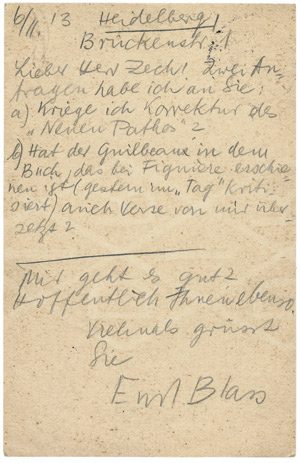 6/II. 13 Heidelberg!
Brückenstr. 1
Lieber Herr Zech! Zwei An-
fragen habe ich an Sie:
a) Kriege ich Korrektur des
„Neuen Pathos"?
b) Hat der Guilbeaux in dem
Buch, das bei Figuiere erschie-
nen ist (gestern im „Tag" kriti-
siert) auch Verse von mir über-
setzt?
Mir geht es gut?
Hoffentlich Ihnen ebenso.
Vielmals grüsst
Sie
Ernst Blass